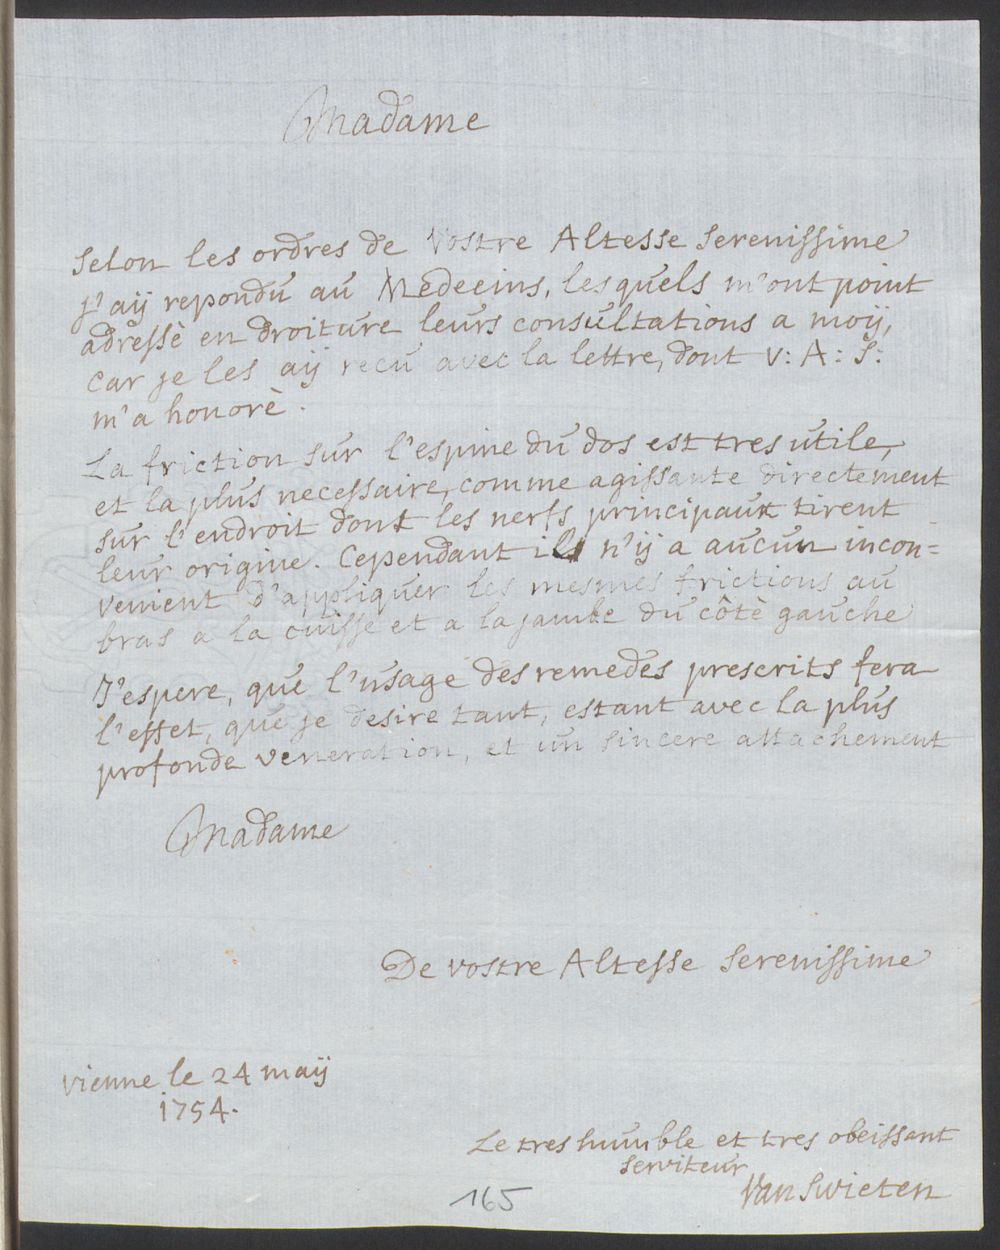 Madame
Selon les ordres de Vostre Altesse Serenissime
j'aÿ repondu au Medecins, lesquels m'ont point
adressè en droiture leurs consultations a moÿ,
car je les aÿ recu avec la lettre, dont V: A: S:
m'a honorè.
La friction sur l'espine du dos est tres utile,
et la plus necessaire, comme agissante directement
sur l'endroit dont les nerfs principaux tirent
leur origine. Cependant il n'ÿ a aucun incon=
venient d'appliquer les mesmes frictions au
bras a la cuisse et a la jambe du côtè gauche
J'espere, que l'usage des remedes prescrits fera
l'effet, que je desire tant, estant avec la plus
profonde veneration, et un sincere attachement
Madame
De vostre Altesse Serenissime
vienne le 24 maÿ
1754.
Le tres humble et tres obeissant
serviteur
Van Swieten
165